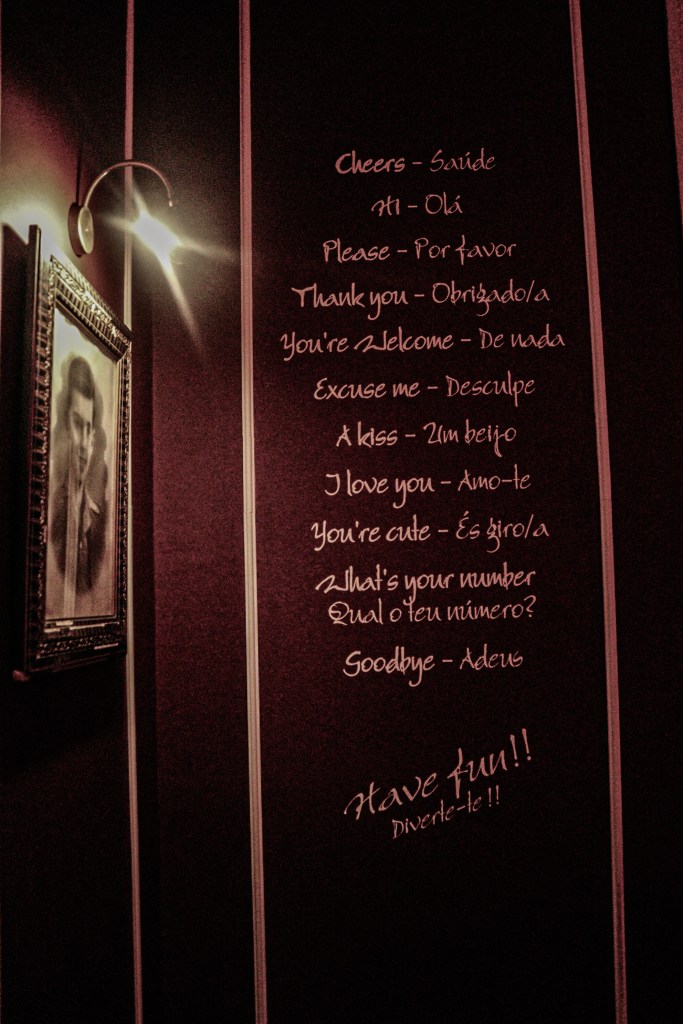 Cheers - Saúde
Hi - Olá
Please - Por favor
Thank you - Obrigado/a
You're Welcome - De nada
Excuse me - Desculpe
A kiss - Um beijo
I love you - Amo-te
You're cute - És giro/a
What's your number
Qual o teu número?
Goodbye - Adeus
Have fun!!
Diverte-te!!